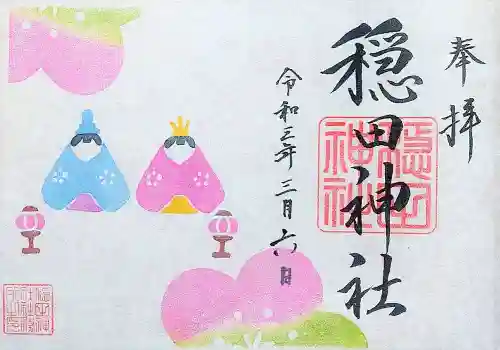 奉拝
穏田神社
令和三年三月六日
穏田神社